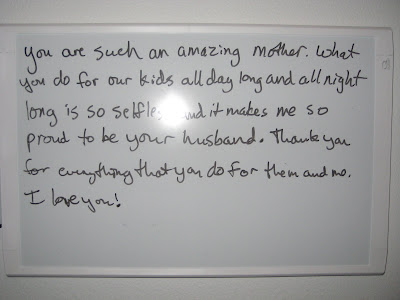 you are such an amazing mother. What
you do for our kids all day long and all night
long is so selfless and it makes me so
proud to be your husband. Thank you
for everything that you do for them and me.
I love you!